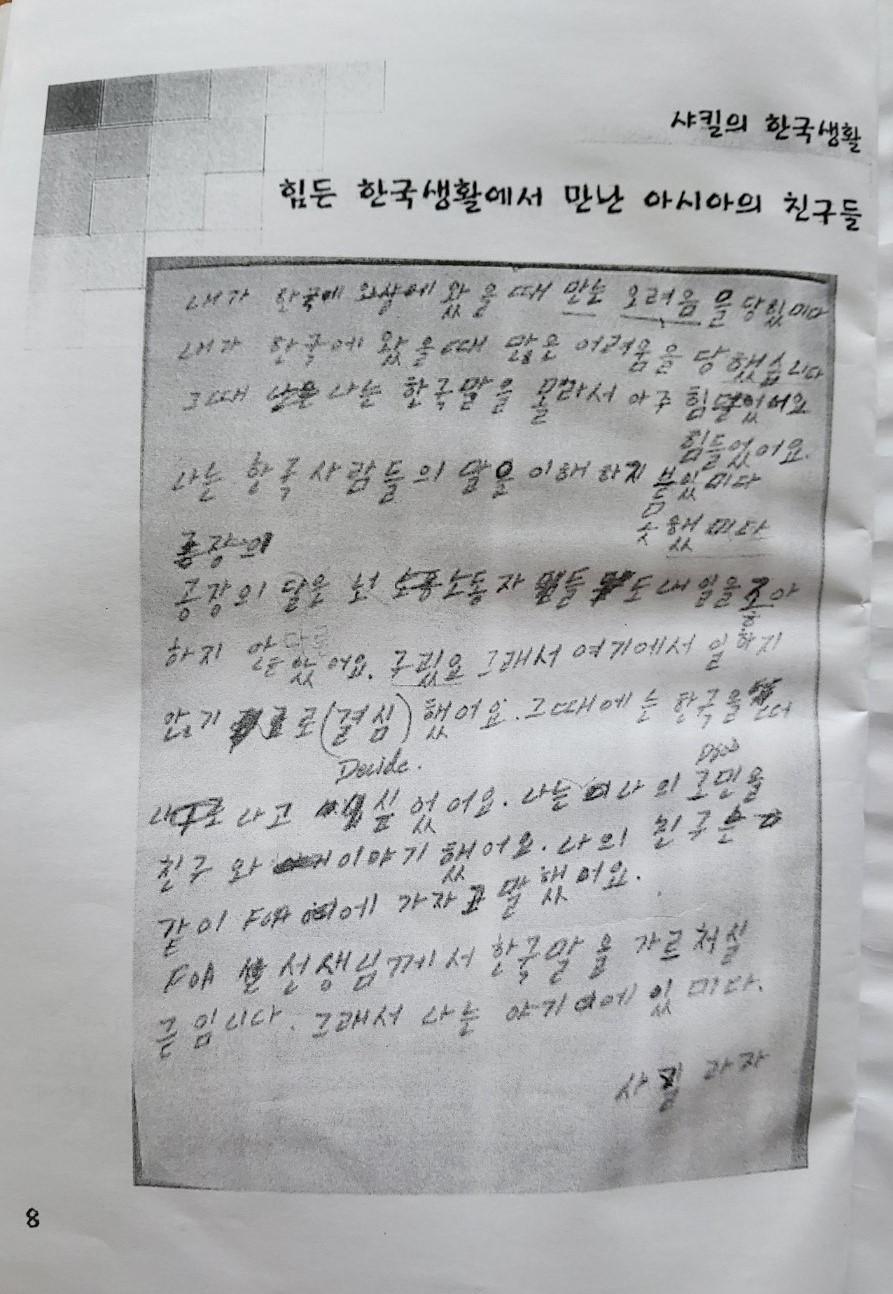 샤킬의 한국생활
힘든 한국생활에서 만난 아시아의 친구들
내가 한국에 왔을때 만는 오려움을 당있미다
내가 한국에 왔을때 많은 어려움을 당했습니다
그때 나는 한국말을 몰라서 아주 힘덜었어요
힘들었어요.
나는 한국사람들의 말을 이해하지 뭇있미다
못했미다
공장의
공장의 달은 노동자들도 내 일을 조아
하지 안았어요. 그래서 여기에서 일하지
안기로 (결심) 했어요. 그때에는 한국을
Decide.
나고 싶었어요. 나는 나의 고민을
친구와 이야기했어요. 나의 친구는
같이 FOA에 가자고 말했어요.
FOA 선생님께서 한국말을 가르처실
그래서 나는 야기에 있미다.
8